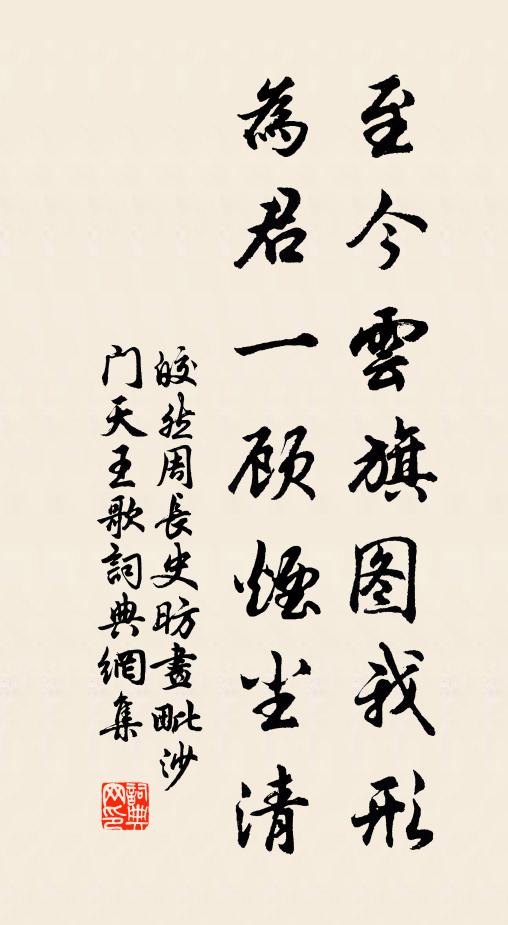 至今雲旗图我形
為君一顾煙尘清
皎然周長史昉畫毗沙
门天王歌詞典網集
詞典网印